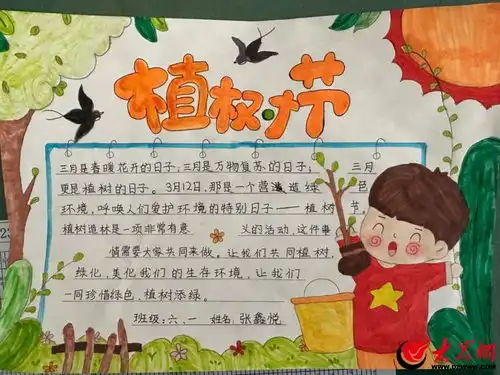 植树节
三月是春暖花开的日子;三月是万物复苏的日子; 三月
更是植树的日子。3月12日,那是一个营造 造绿 色
环境,呼唤人们爱护环境的特别日子——植树 节,
植树造林是一项非常有意 义的活动,这件事
情需要大家共同来做。让我们共同植树,
绿化,美化我们的生存环境,让我们
一同珍惜绿色,植树添绿。
班级:六、一 姓名:张鑫悦
大众网